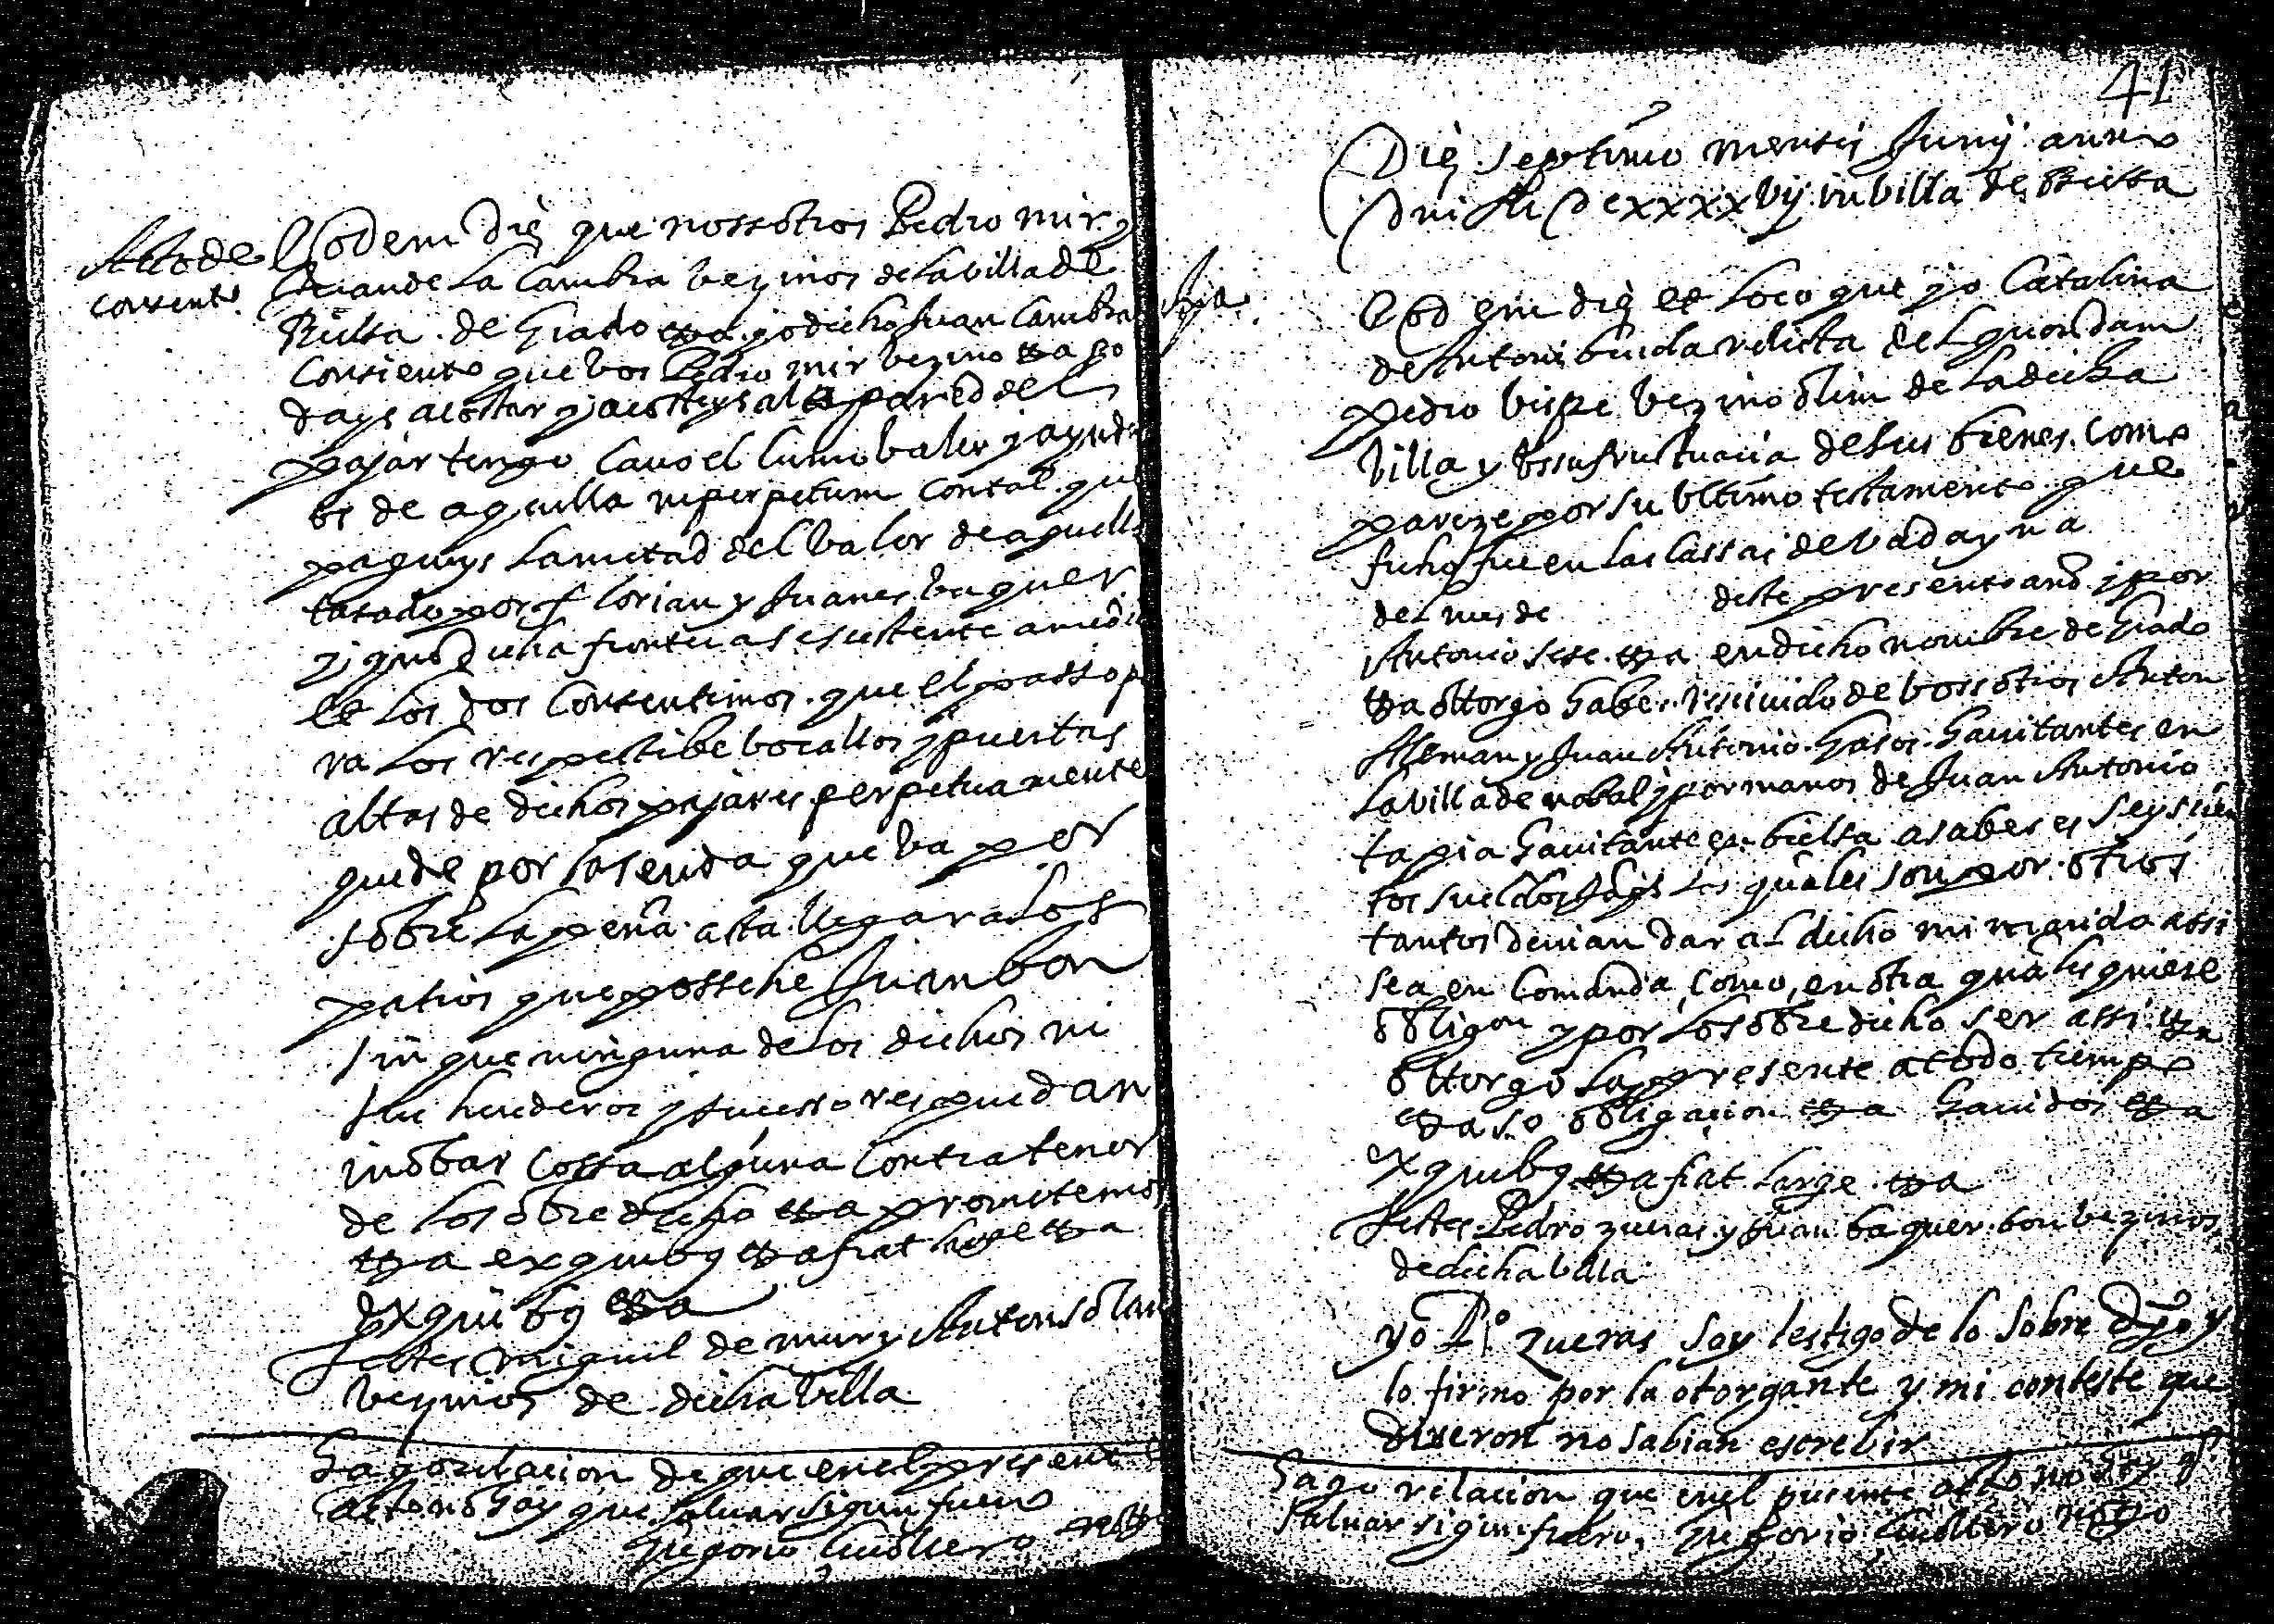 Acto de
consent.
Eodem die que nossotros Pedro mir y
Juan de la Cambra vezinos de la villa de
Bielsa de Grado etta yo dicho Juan Cambra
Consiento que vos Pedro mir vezino etta po
days acostar y acosteys a la pared del
pajar tengo cauo el
de aquella inperpetum con tal que
pagueys la mitad del valor de aquella
tatado por Florian y Juanes baquer
y que dicha frontera
et los dos Consentimos que el passo pa
ra los respectibe bocallos y puertas
altas de dichos pajares perpetuamente
quede por la senda que va por
sobre la peña asta llegar a los
patios que possehe Juan bon
sin que ninguna de los dichos ni
sus herederos y sucessores puedan
inobar cossa alguna contra tenor
de lo sobre dicho etta prometemos
etta ex quibus etta fiat large etta
ex quibus etta
Testes Miguel de mur y Anton solan
vezinos de dicha villa
Hago relacion de que en el present
acto no hay que saluar sigun fuero
Gregorio notto
41
Die septimo mensis Junij anno
Dni M DCxxxxvij in villa de Bielsa
Apa
Eodem die et loco que yo Catalina
de Antoni buila relicta del quondam
Pedro bispe vezino olim de la dicha
villa y ussufructuaria de sus bienes como
pareze por su ultimo testamento que
fecho fue en las cassas de badayna
del mes de deste presente año y por
Antonio sese etta en dicho nombre de Grado
etta ottorgo haber receuido de vossotros Anton
Aleman y Juan Antonio Gasos hauitantes en
la villa de nabal y por manos de Juan Antonio
tapia hauitante en bielsa a saber es seyscien
tos sueldos Jaqs los quales son por otros
tantos deuian dar al dicho mi marido assi
sea en Comanda como en otra qualesquiere
obligon y por lo sobre dicho ser assi etta
ottorgo la presente a todo tiempo
etta so obligacion etta hauidos etta
ex quibus etta fiat large etta
Testes Pedro zueras y Juan baquer bon vezinos
de dicha villa
yo Po zueras soy testigo de lo sobre dho y
lo firmo por la otorgante y mi conteste que
dixeron no sabian escrebir
Hago relacion que en el presente acto no hay q
saluar sigun fuero, Gregorio notto